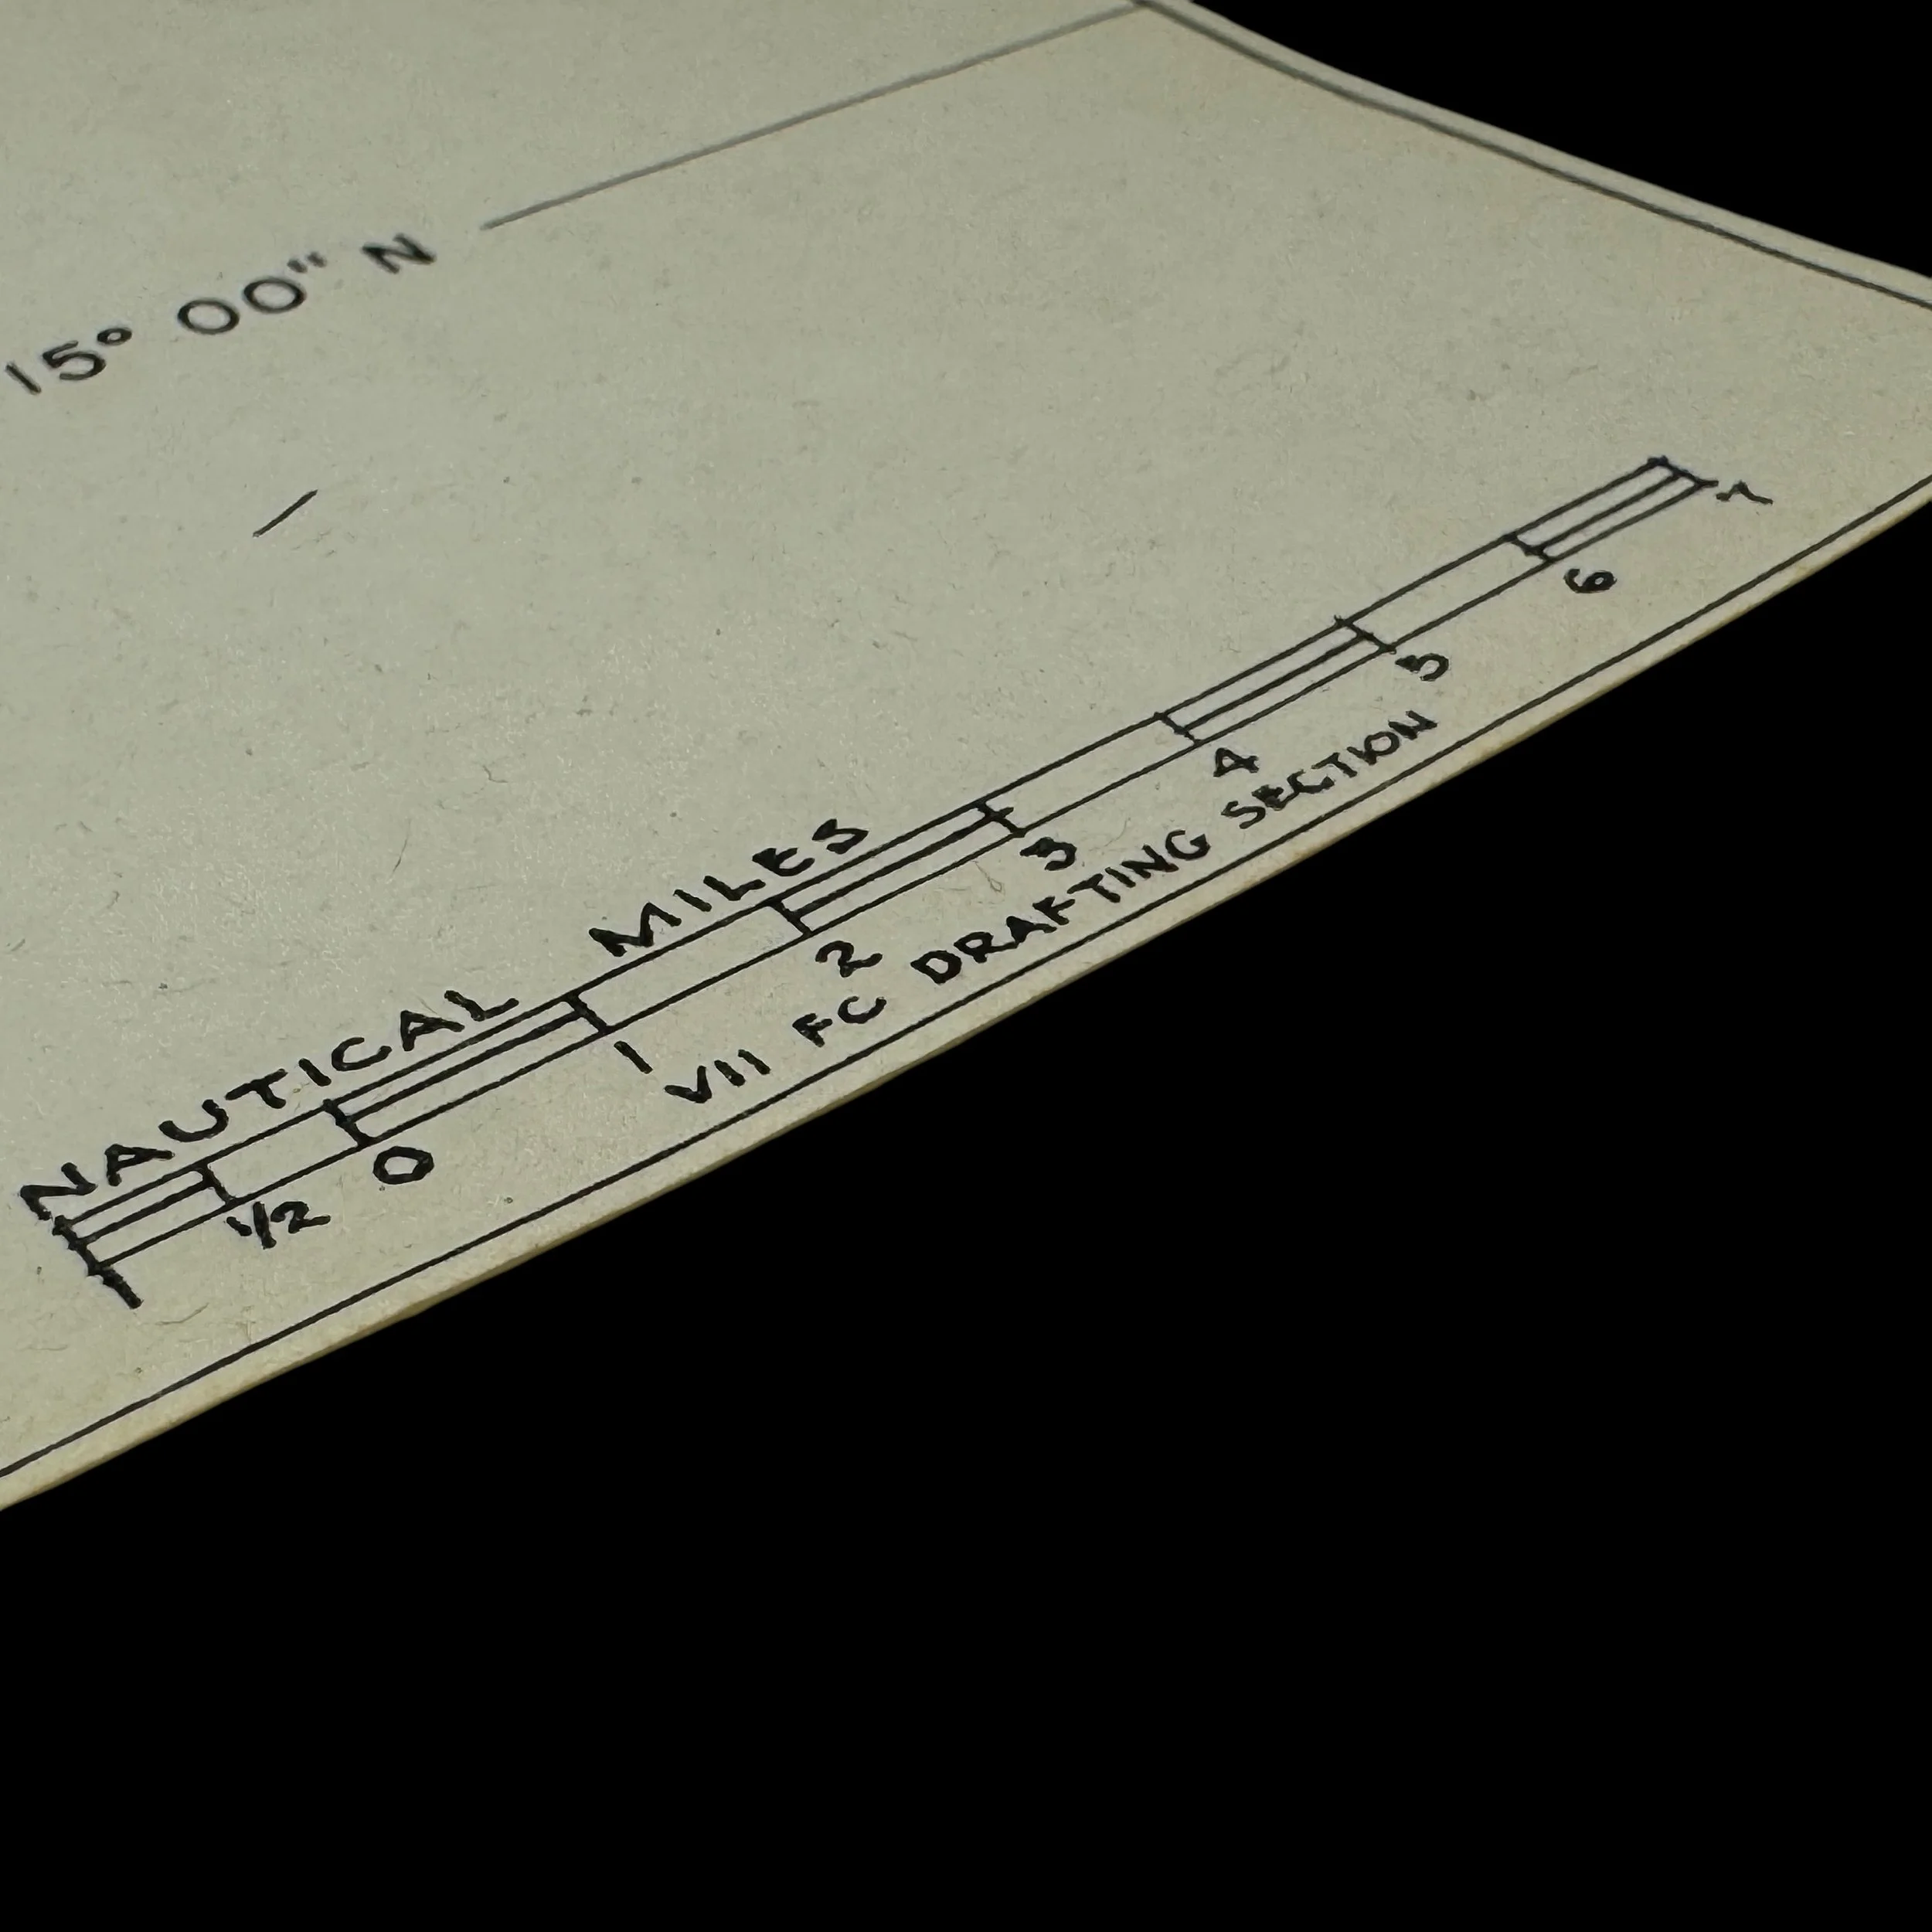 15° 00" N
NAUTICAL MILES
1 1/2 0 1 2 3 4 5 6 7
VII FC DRAFTING SECTION